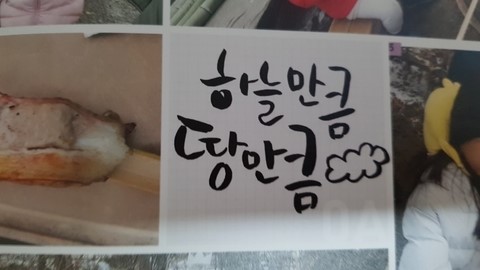 하늘만큼
땅만큼